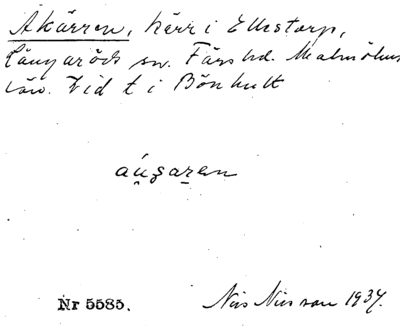 Åkärren, kärr i Ellestorp,
Långaröds sn. Färs hd. Malmöhus
län. Vid t i Bönhult
Nr 5585. Nils Nilsson 1937.